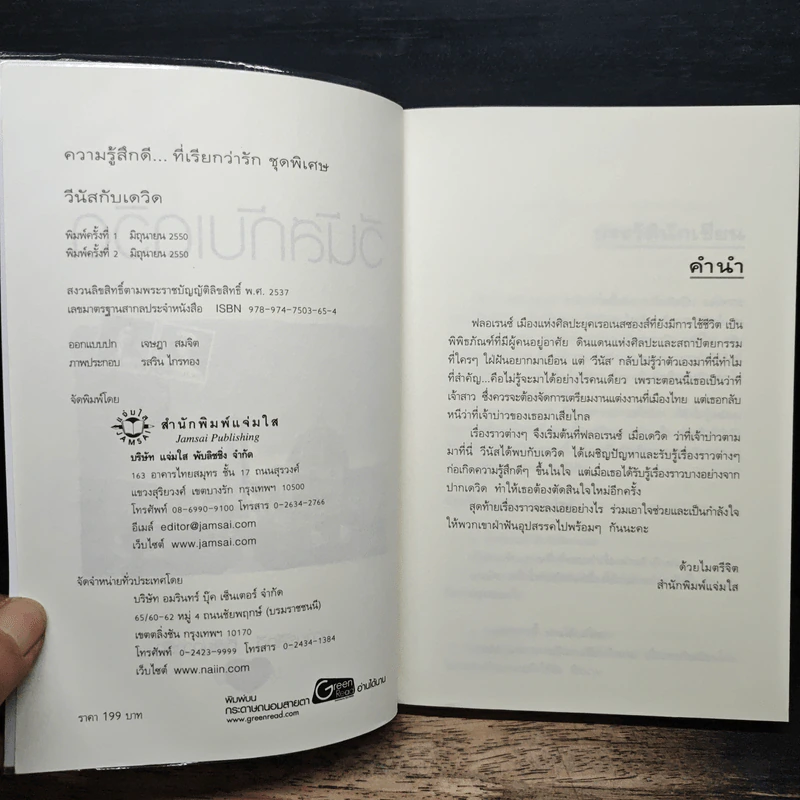 ความรู้สึกดี... ที่เรียกว่ารัก ชุดพิเศษ
วีนัสกับเดวิด
พิมพ์ครั้งที่ 1 มิถุนายน 2550
พิมพ์ครั้งที่ 2 มิถุนายน 2550
สงวนลิขสิทธิ์ตามพระราชบัญญัติลิขสิทธิ์ พ.ศ. 2537
เลขมาตรฐานสากลประจำหนังสือ ISBN 978-974-7503-65-4
ออกแบบปก เจษฎา สมจิต
ภาพประกอบ รสริน ไกรทอง
จัดพิมพ์โดย
แจ่มใส
JAMSAI
สำนักพิมพ์แจ่มใส
Jamsai Publishing
บริษัท แจ่มใส พับลิชชิ่ง จำกัด
163 อาคารไทยสมุทร ชั้น 17 ถนนสุรวงศ์
แขวงสุริยวงศ์ เขตบางรัก กรุงเทพฯ 10500
โทรศัพท์ 08-6990-9100 โทรสาร 0-2634-2766
อีเมล์ editor@jamsai.com
เว็บไซต์ www.jamsai.com
จัดจำหน่ายทั่วประเทศโดย
บริษัท อมรินทร์ บุ๊ค เซ็นเตอร์ จำกัด
65/60-62 หมู่ 4 ถนนชัยพฤกษ์ (บรมราชชนนี)
เขตตลิ่งชัน กรุงเทพฯ 10170
โทรศัพท์ 0-2423-9999 โทรสาร 0-2434-1384
เว็บไซต์ www.naiin.com
พิมพ์บน
กระดาษถนอมสายตา Green Read อ่านได้นาน
www.greenread.com
ราคา 199 บาท
คำนำ
ฟลอเรนซ์ เมืองแห่งศิลปะยุคเรอเนสซองส์ที่ยังมีการใช้ชีวิต เป็น
พิพิธภัณฑ์ที่มีผู้คนอยู่อาศัย ดินแดนแห่งศิลปะและสถาปัตยกรรม
ที่ใครๆ ใฝ่ฝันอยากมาเยือน แต่ 'วีนัส' กลับไม่รู้ว่าตัวเองมาที่นี่ทำไม
ที่สำคัญ...คือไม่รู้จะมาได้อย่างไรคนเดียว เพราะตอนนี้เธอเป็นว่าที่
เจ้าสาว ซึ่งควรจะต้องจัดการเตรียมงานแต่งงานที่เมืองไทย แต่เธอกลับ
หนีว่าที่เจ้าบ่าวของเธอมาเสียไกล
เรื่องราวต่างๆ จึงเริ่มต้นที่ฟลอเรนซ์ เมื่อเดวิด ว่าที่เจ้าบ่าวตาม
มาที่นี่ วีนัสได้พบกับเดวิด ได้เผชิญปัญหาและรับรู้เรื่องราวต่างๆ
ก่อเกิดความรู้สึกดีๆ ขึ้นในใจ แต่เมื่อเธอได้รับรู้เรื่องราวบางอย่างจาก
ปากเดวิด ทำให้เธอต้องตัดสินใจใหม่อีกครั้ง
สุดท้ายเรื่องราวจะลงเอยอย่างไร ร่วมเอาใจช่วยและเป็นกำลังใจ
ให้พวกเขาฝ่าฟันอุปสรรคไปพร้อมๆ กันนะคะ
ด้วยไมตรีจิต
สำนักพิมพ์แจ่มใส